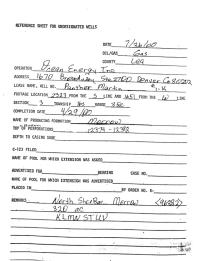 REFERENCE SHEET FOR UNDESIGNATED WELLS
DATE 7/26/00
OIL/GAS Gas
COUNTY Lea
OPERATOR Ocean Energy Inc
ADDRESS 1670 Broadway Ste 2700 Denver Co 80202
LEASE NAME, WELL NO. Panther Martin #1-K
FOOTAGE LOCATION 2323 FROM THE S LINE AND 1651 FROM THE W LINE
SECTION 3 TOWNSHIP RANGE 35E
COMPLETION DATE 4/29/00
NAME OF PRODUCING FORMATION Morrow
TOP OF PERFORATIONS
DEPTH TO CASING SHOE
C-123 FILED
NAME OF POOL FOR WHICH EXTENSION WAS ASKED
ADVERTISED FOR HEARING CASE NO.
NAME OF POOL FOR WHICH EXTENSION WAS ADVERTISED
PLACED IN BY ORDER NO. R-
REMARKS North Morrow
320 ac
KLMN